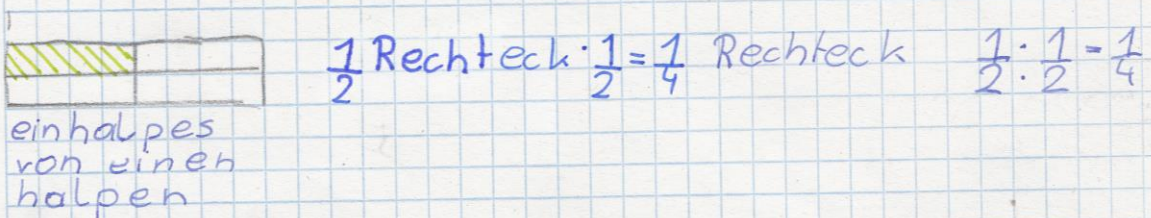 1/2 Rechteck · 1/2 = 1/4 Rechteck 1/2 : 1/2 = 1/4
einhalpes
von einen
halpen